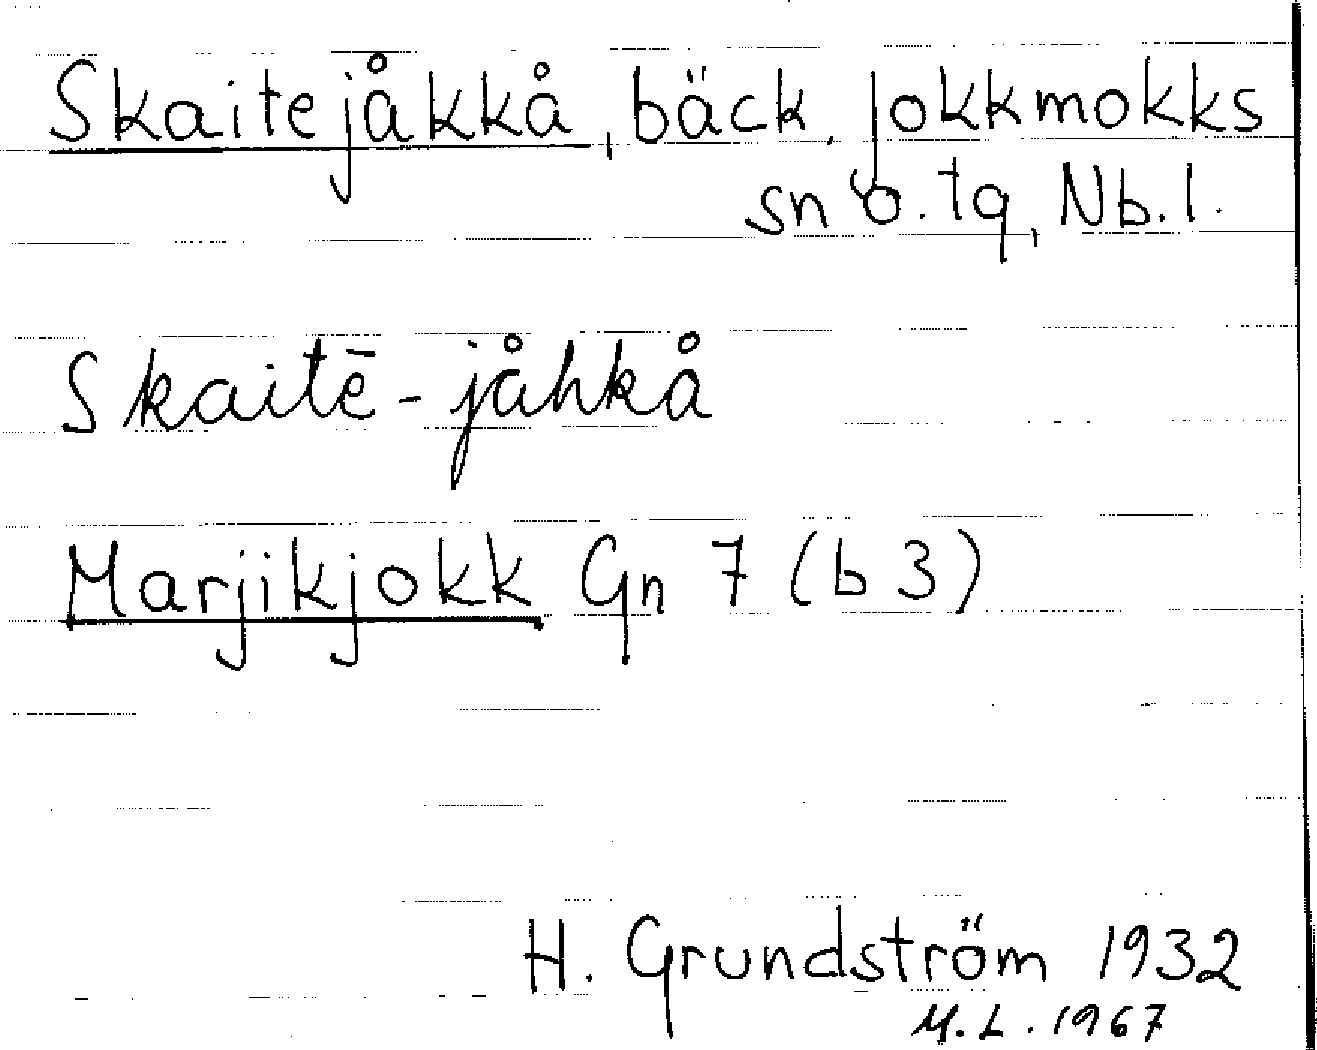 Skaitejåkkå, bäck. Jokkmokks
sn o. tq, Nb.l.
Skaitē-jåhkå
Marjikjokk Gn 7 (b3)
H. Grundström 1932
M.L. 1967